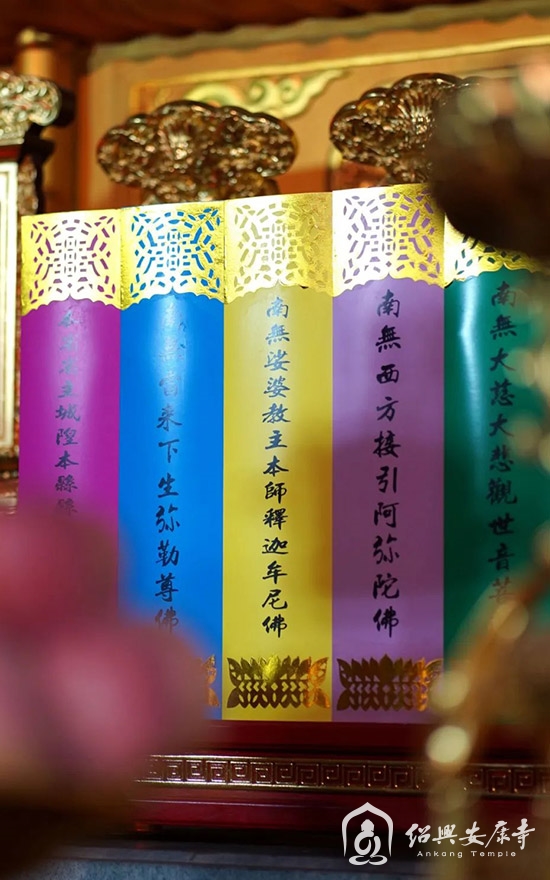 主城隍本縣
南無當来下生弥勒尊佛
南無娑婆教主本師釋迦牟尼佛
南無西方接引阿弥陀佛
南無大慈大悲觀世音菩
紹興安康寺
Ankang Temple